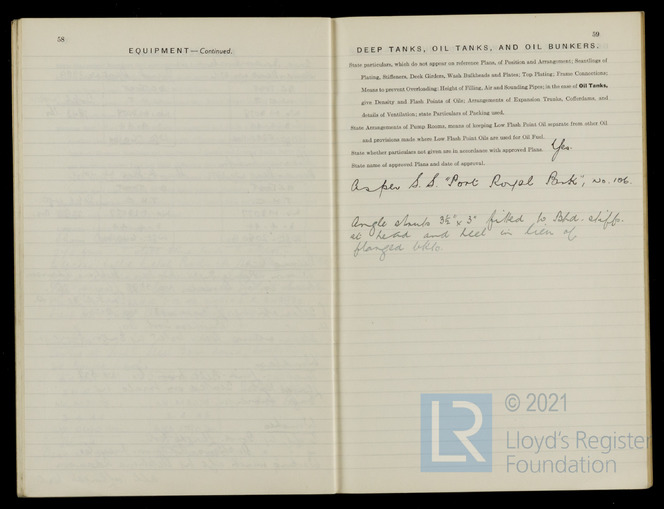 58
EQUIPMENT—Continued.
59
DEEP TANKS, OIL TANKS, AND OIL BUNKERS.
State particulars, which do not appear on reference Plans, of Position and Arrangement; Scantlings of
Plating, Stiffeners, Deck Girders, Wash Bulkheads and Plates; Top Plating; Frame Connections;
Means to prevent Overloading; Height of Filling, Air and Sounding Pipes; in the case of Oil Tanks,
give Density and Flash Points of Oils; Arrangements of Expansion Trunks, Cofferdams, and
details of Ventilation; state Particulars of Packing used.
State Arrangements of Pump Rooms, means of keeping Low Flash Point Oil separate from other Oil
and provisions made where Low Flash Point Oils are used for Oil Fuel.
State whether particulars not given are in accordance with approved Plans. Yes.
State name of approved Plans and date of approval.
As per S.S. "Fort Royal Park", No. 106.
Angle struts 3½" x 3" fitted to Bhd. stiffs.
at head and heel in lieu of
flanged bkts.
LR
© 2021
Lloyd's Register
Foundation